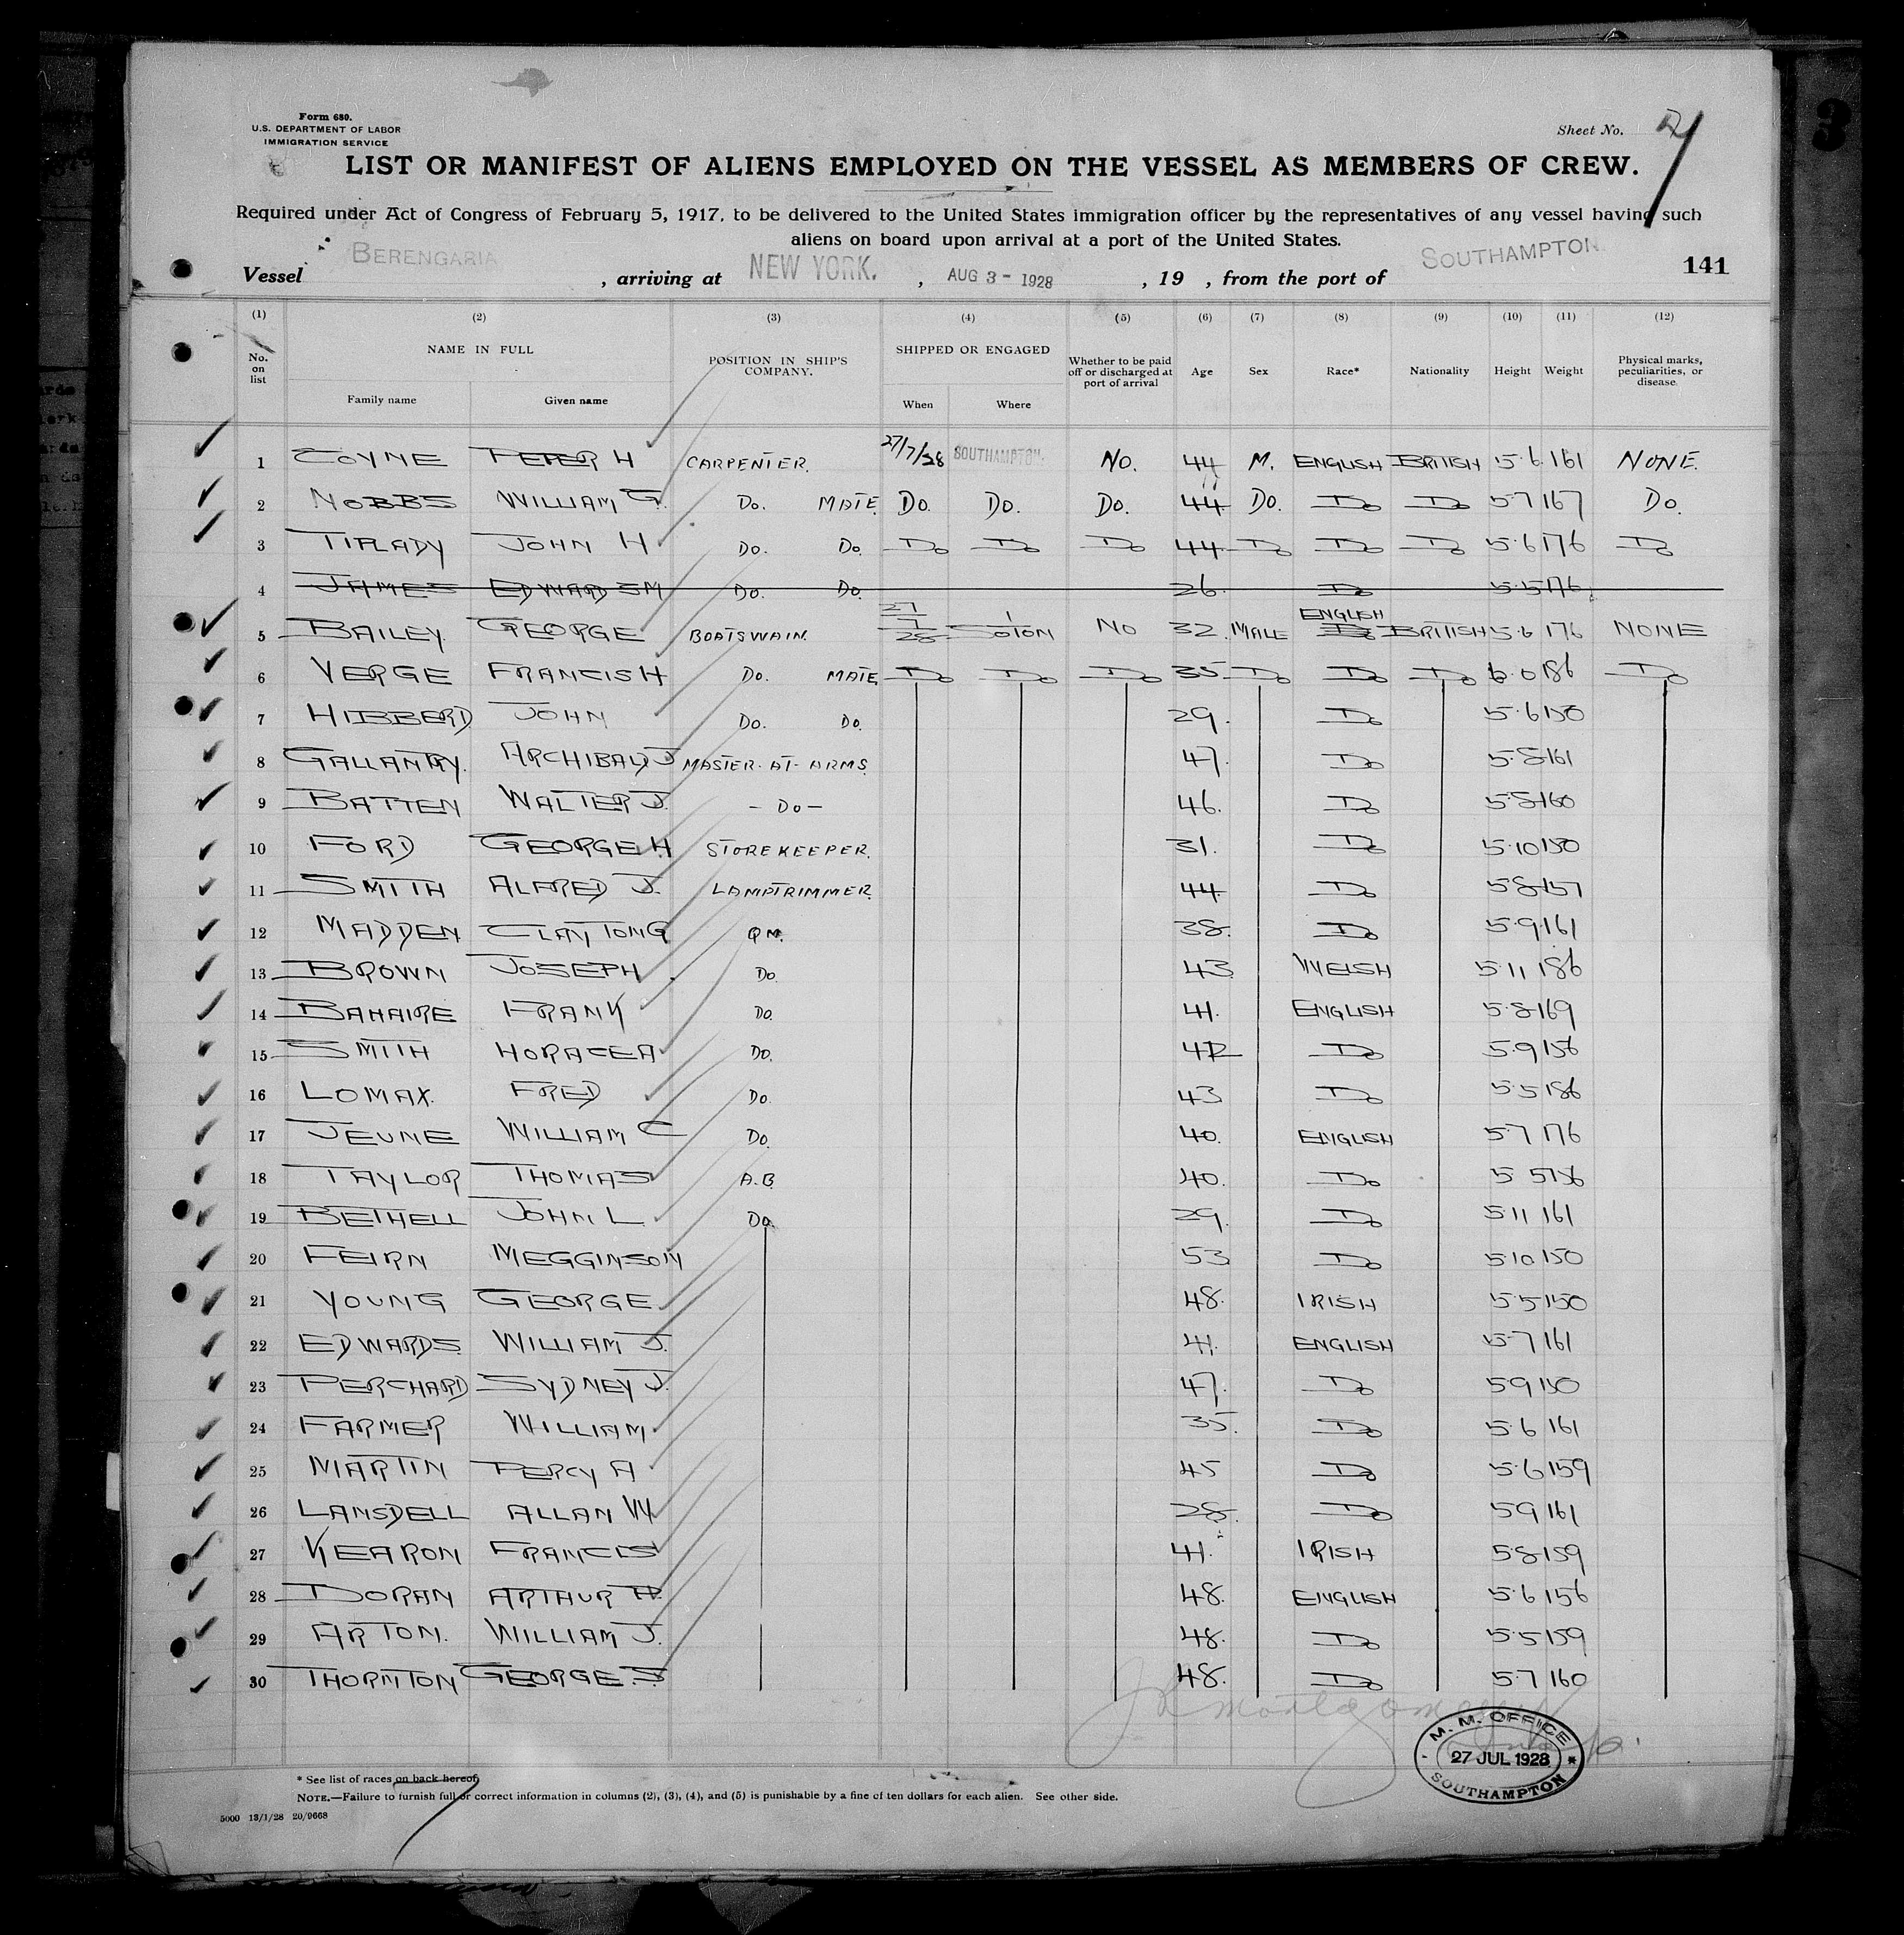 Form 680.
U.S. DEPARTMENT OF LABOR
IMMIGRATION SERVICE
Sheet No.
LIST OR MANIFEST OF ALIENS EMPLOYED ON THE VESSEL AS MEMBERS OF CREW.
Required under Act of Congress of February 5, 1917, to be delivered to the United States immigration officer by the representatives of any vessel having such
aliens on board upon arrival at a port of the United States.
Vessel BERENGARIA , arriving at NEW YORK. , AUG 3 - 1928 , 19 , from the port of SOUTHAMPTON. 141
(1) (2) (3) (4) (5) (6) (7) (8) (9) (10) (11) (12)
No. on list NAME IN FULL POSITION IN SHIP'S COMPANY. SHIPPED OR ENGAGED Whether to be paid off or discharged at port of arrival Age Sex Race* Nationality Height Weight Physical marks, peculiarities, or disease.
Family name Given name When Where
1 COYNE PETER H CARPENTER. 27/7/28 SOUTHAMPTON. NO. 44 M. ENGLISH BRITISH 5.6 161 NONE.
2 NOBBS WILLIAM G. Do. MATE Do. Do. Do. 44 Do. Do Do 5.7 167 Do.
3 TIPLADY JOHN H Do. Do. Do Do Do 44 Do Do Do 5.6 176 Do
4 JAMES EDWARDS M Do. Do. 26. Do 5.5 176
5 BAILEY. GEORGE BOATSWAIN. 27/7/28 SOTON NO 32. MALE ENGLISH BRITISH 5.6 176 NONE
6 VERGE FRANCIS H Do. MATE Do Do Do 35 Do Do Do 6.0 186 Do
7 HIBBERD JOHN Do. Do. 29. Do 5.6 150
8 GALLANTRY. ARCHIBALD J MASTER-AT-ARMS. 47. Do 5.8 161
9 BATTEN WALTER J. - Do - 46. Do 5.8 160
10 FORD GEORGE H STOREKEEPER. 31. Do 5.10 150
11 SMITH ALFRED J. LAMPTRIMMER. 44 Do 5.8 157
12 MADDEN CLAYTON G QM. 38. Do 5.9 161
13 BROWN JOSEPH Do. 43 WELSH 5.11 186
14 BAHAIRE FRANK Do. 41. ENGLISH 5.8 169
15 SMITH HORACE A Do. 42 Do 5.9 156
16 LOMAX. FRED Do. 43 Do 5.5 186
17 JEUNE WILLIAM C Do. 40. ENGLISH 5.7 176
18 TAYLOR THOMAS A.B. 40. Do 5 5 156
19 BETHELL JOHN L Do. 29. Do 5.11 161
20 FEIRN MEGGINSON 53 Do 5.10 150
21 YOUNG GEORGE 48. IRISH 5.5 150
22 EDWARDS WILLIAM J. 41. ENGLISH 5.7 161
23 PERCHARD SYDNEY J. 47. Do 5.9 150
24 FARMER WILLIAM 35. Do 5.6 161
25 MARTIN PERCY A 45 Do 5.6 159
26 LANSDELL ALLAN W 28. Do 5.9 161
27 KEARON FRANCIS 41. IRISH 5.8 159
28 DORAN ARTHUR H. 48. ENGLISH 5.6 156
29 ARTON. WILLIAM J. 48. Do 5.5 159
30 THORNTON GEORGE. S 48. Do 5.7 160
M. M. OFFICE
27 JUL 1928
SOUTHAMPTON
* See list of races on back hereof.
NOTE.—Failure to furnish full or correct information in columns (2), (3), (4), and (5) is punishable by a fine of ten dollars for each alien. See other side.
5000 13/1/28 20/9668